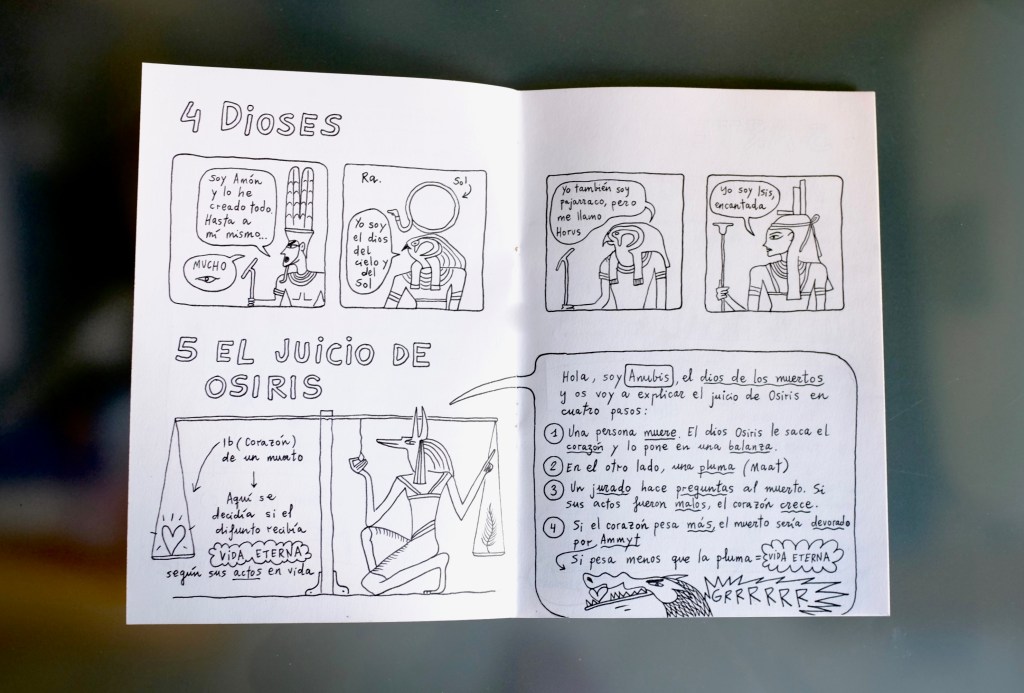 4 DioSES
Soy Amón
y lo he
creado todo.
Hasta a
mí mismo...
MUCHO
Ra.
Sol
Yo soy
el dios
del
cielo y
del
Sol
Yo también soy
pajarraco, pero
me llamo
Horus
Yo soy Isis,
encantada
5 EL JUICIO DE
OSIRIS
Ib (Corazón)
de un muerto
Aquí se
decidía si el
difunto recibía
ViDA ETERNA
según sus actos en vida
Hola, soy Anubis, el dios de los muertos
y os voy a explicar el juicio de Osiris en
cuatro pasos:
1 Una persona muere. El dios Osiris le saca el
corazón y lo pone en una balanza.
2 En el otro lado, una pluma (Maat)
3 Un jurado hace preguntas al muerto. Si
sus actos fueron malos, el corazón crece.
4 Si el corazón pesa más, el muerto sería devorado
por Ammyt
Si pesa menos que la pluma = ViDA ETERNA
GRRRRRR